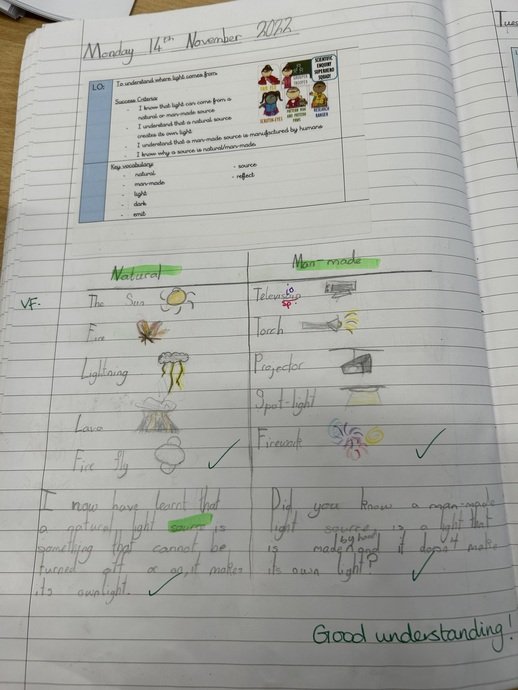 Monday 14th November 2022
LO:
To understand where light comes from
Success Criteria:
- I know that light can come from a natural or man-made source
- I understand that a natural source creates its own light
- I understand that a man-made source is manufactured by humans
- I know why a source is natural/man-made.
SCIENTIFIC ENQUIRY SUPERHERO SQUAD!
Key vocabulary:
- natural
- man-made
- light
- dark
- emit
- source
- reflect
Natural
Man-made
VF.
The Sun
Fire
Lightning
Lava
Fire fly
Television
sp.
Torch
Projector
Spot-light
Firework
I now have learnt that
a natural light source is
something that cannot be
turned off or on, it makes
its ownlight.
Did you know a man-made
light source is a light that
is made by hand and it doesn't make
its own light?
Good understanding!
Tues